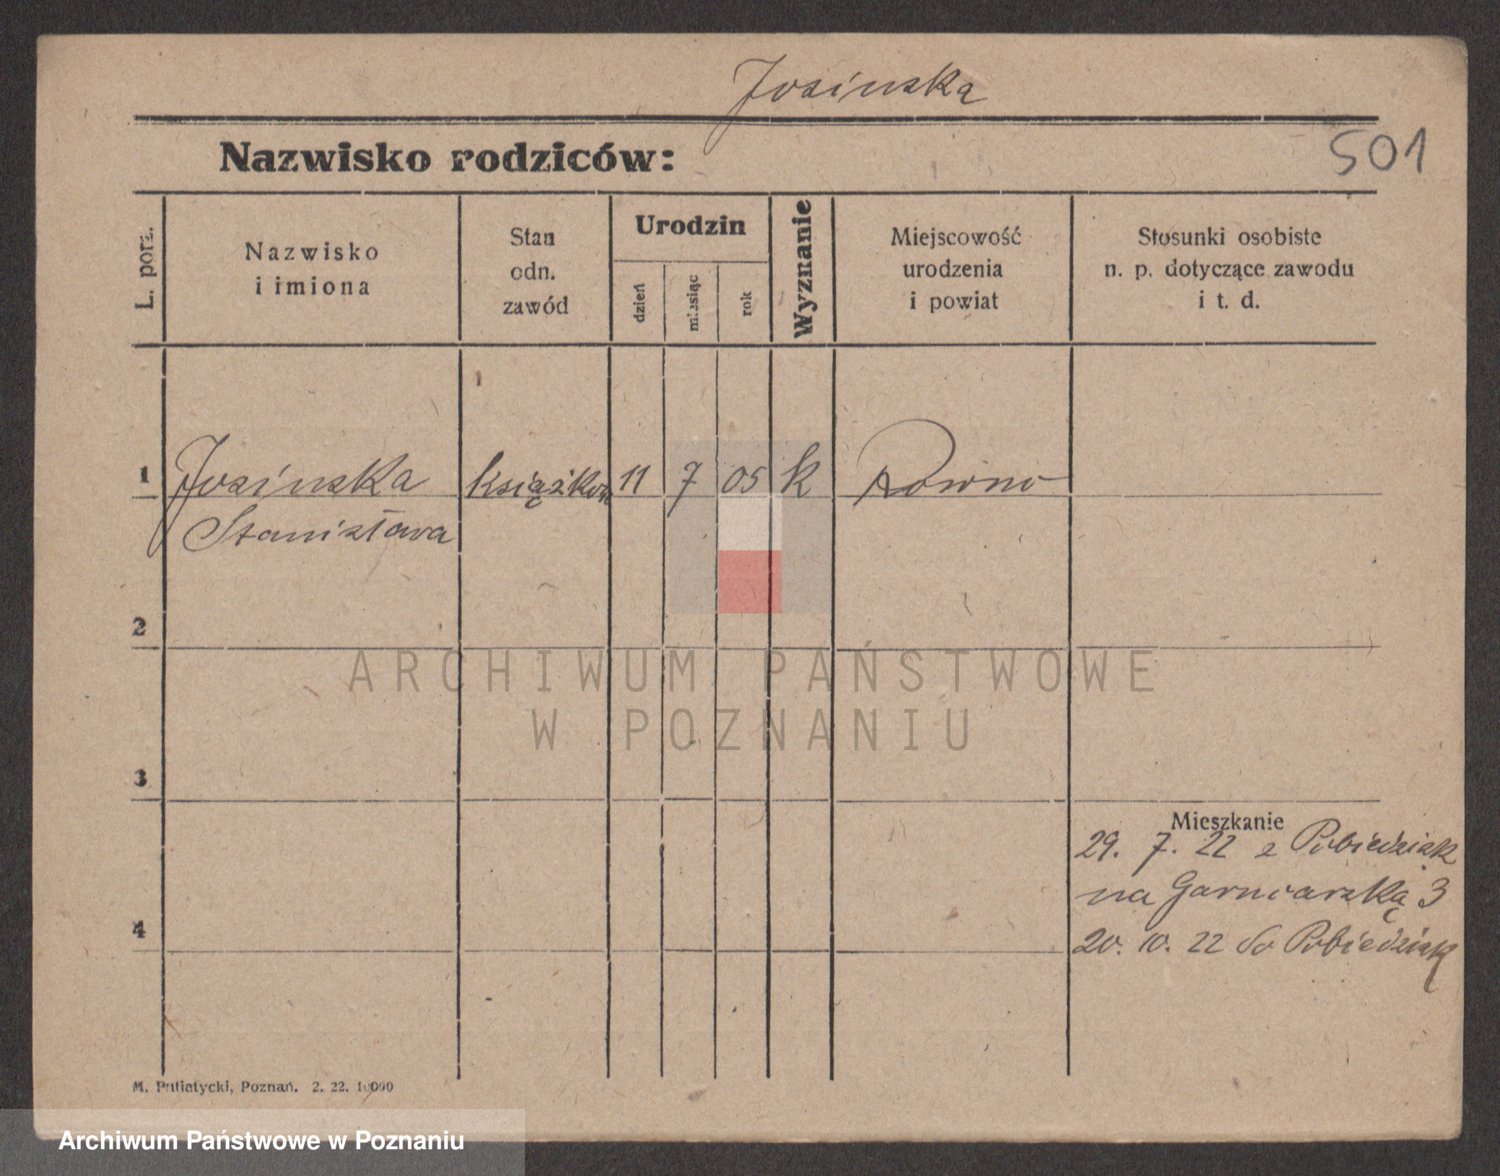 Josinska
Nazwisko rodziców:
501
L. porz.
Nazwisko
i imiona
Stan
odn.
zawód
Urodzin
dzień
miesiąc
rok
Wyznanie
Miejscowość
urodzenia
i powiat
Stosunki osobiste
n. p. dotyczące zawodu
i t. d.
1
Josinska
Stanisława
książkow
11
7
05
k
Rowno
2
ARCHIWUM PAŃSTWOWE
W POZNANIU
3
Mieszkanie
29. 7. 22 z Pobiedzisk
na Garncarską 3
4
20. 10. 22 do Pobiedzisk
M. Putiatycki, Poznań. 2. 22. 10000
Archiwum Państwowe w Poznaniu